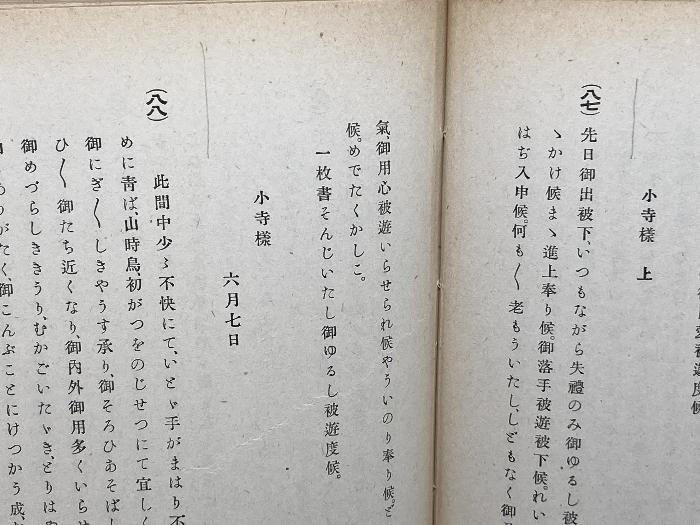 被遊度候
小寺樣　上
（八七）先日御出被下、いつもながら失禮のみ御ゆるし被
ゝかけ候まゝ進上奉り候。御落手被遊被下候。れい
はぢ入申候。何も〳〵老もういたし、しどもなく御
氣、御用心被遊いらせられ候やういのり奉り候。ど
候。めでたくかしこ。
一枚書そんじいたし御ゆるし被遊度候。
小寺樣
六月七日
（八八）
此間中少々不快にて、いとゞ手がまはり不
めに靑ば、山時鳥、初がつをのじせつにて宜しく
御にぎ〳〵しきやうす承り、御そろひあそばし
ひ〳〵御たち近くなり、御內外御用多くいらせ
御めづらしききうり、むかごいたゞき、とりは
がたく、御こんぶことにけつかう成、